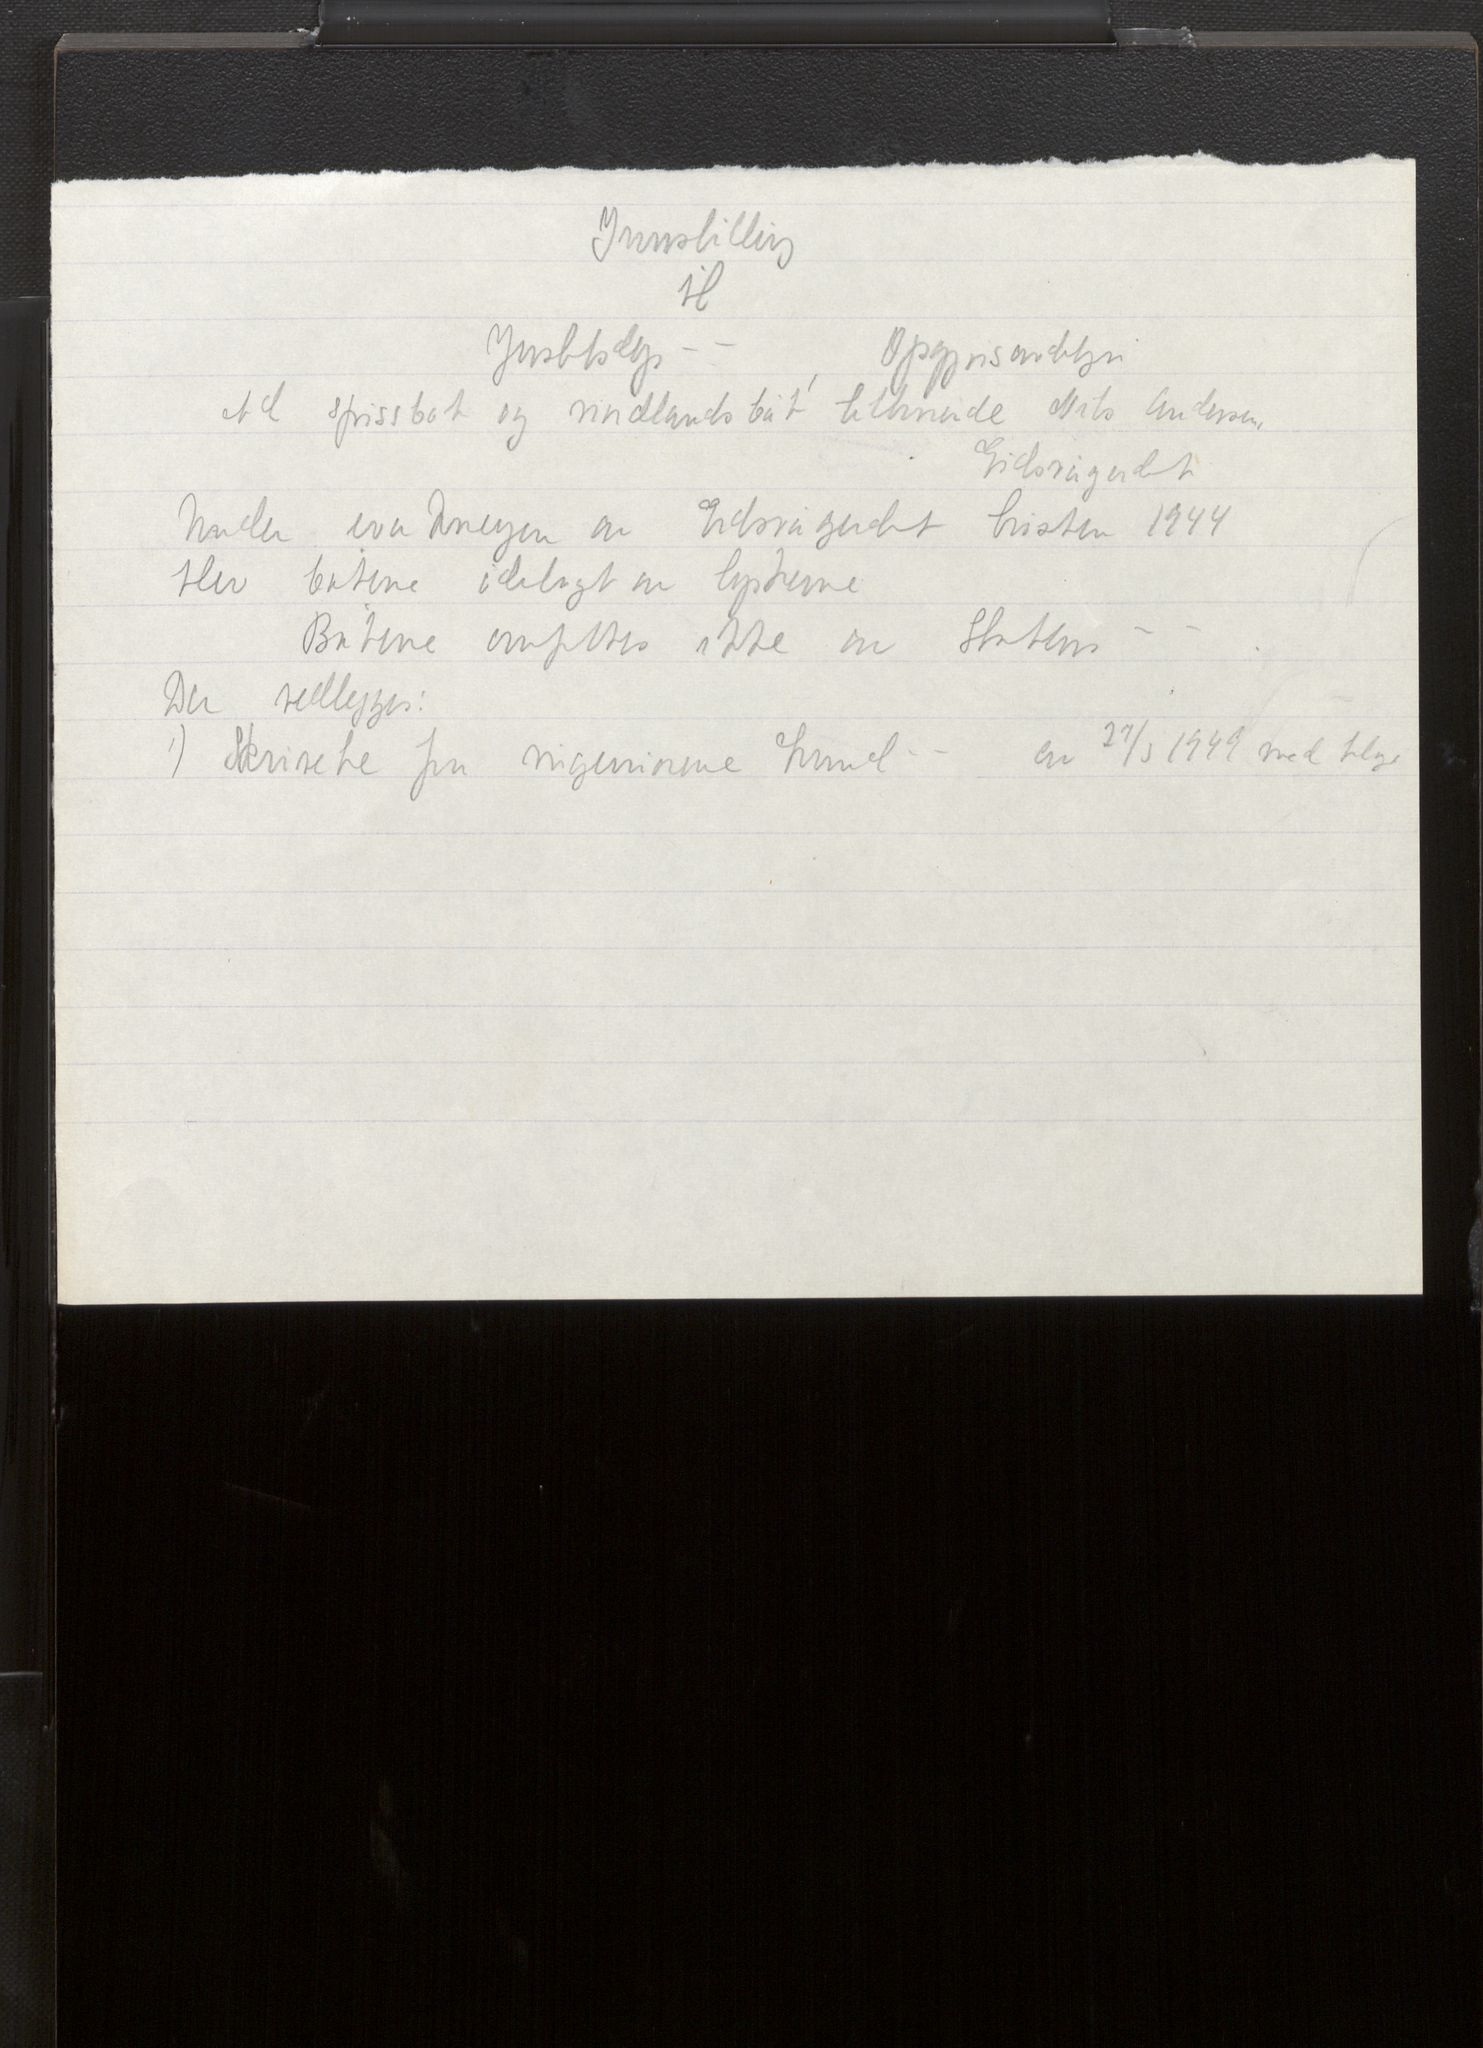 Innstilling
til
Justisdep - - Oppgjørsavdelgn
Ad spissbåt og nordlandsbåt tilhørende Nils Andersen,
Eidsvågeidet
Under evakueringen av Eidsvågeidet høsten 1944
blev båtene ødelagt av tyskerne
Båtene omfattes ikke av Statens - -
Der vedlegges:
1) Skrivelse fra ingeniørene Lund - - av 27/5 1949 med bilag